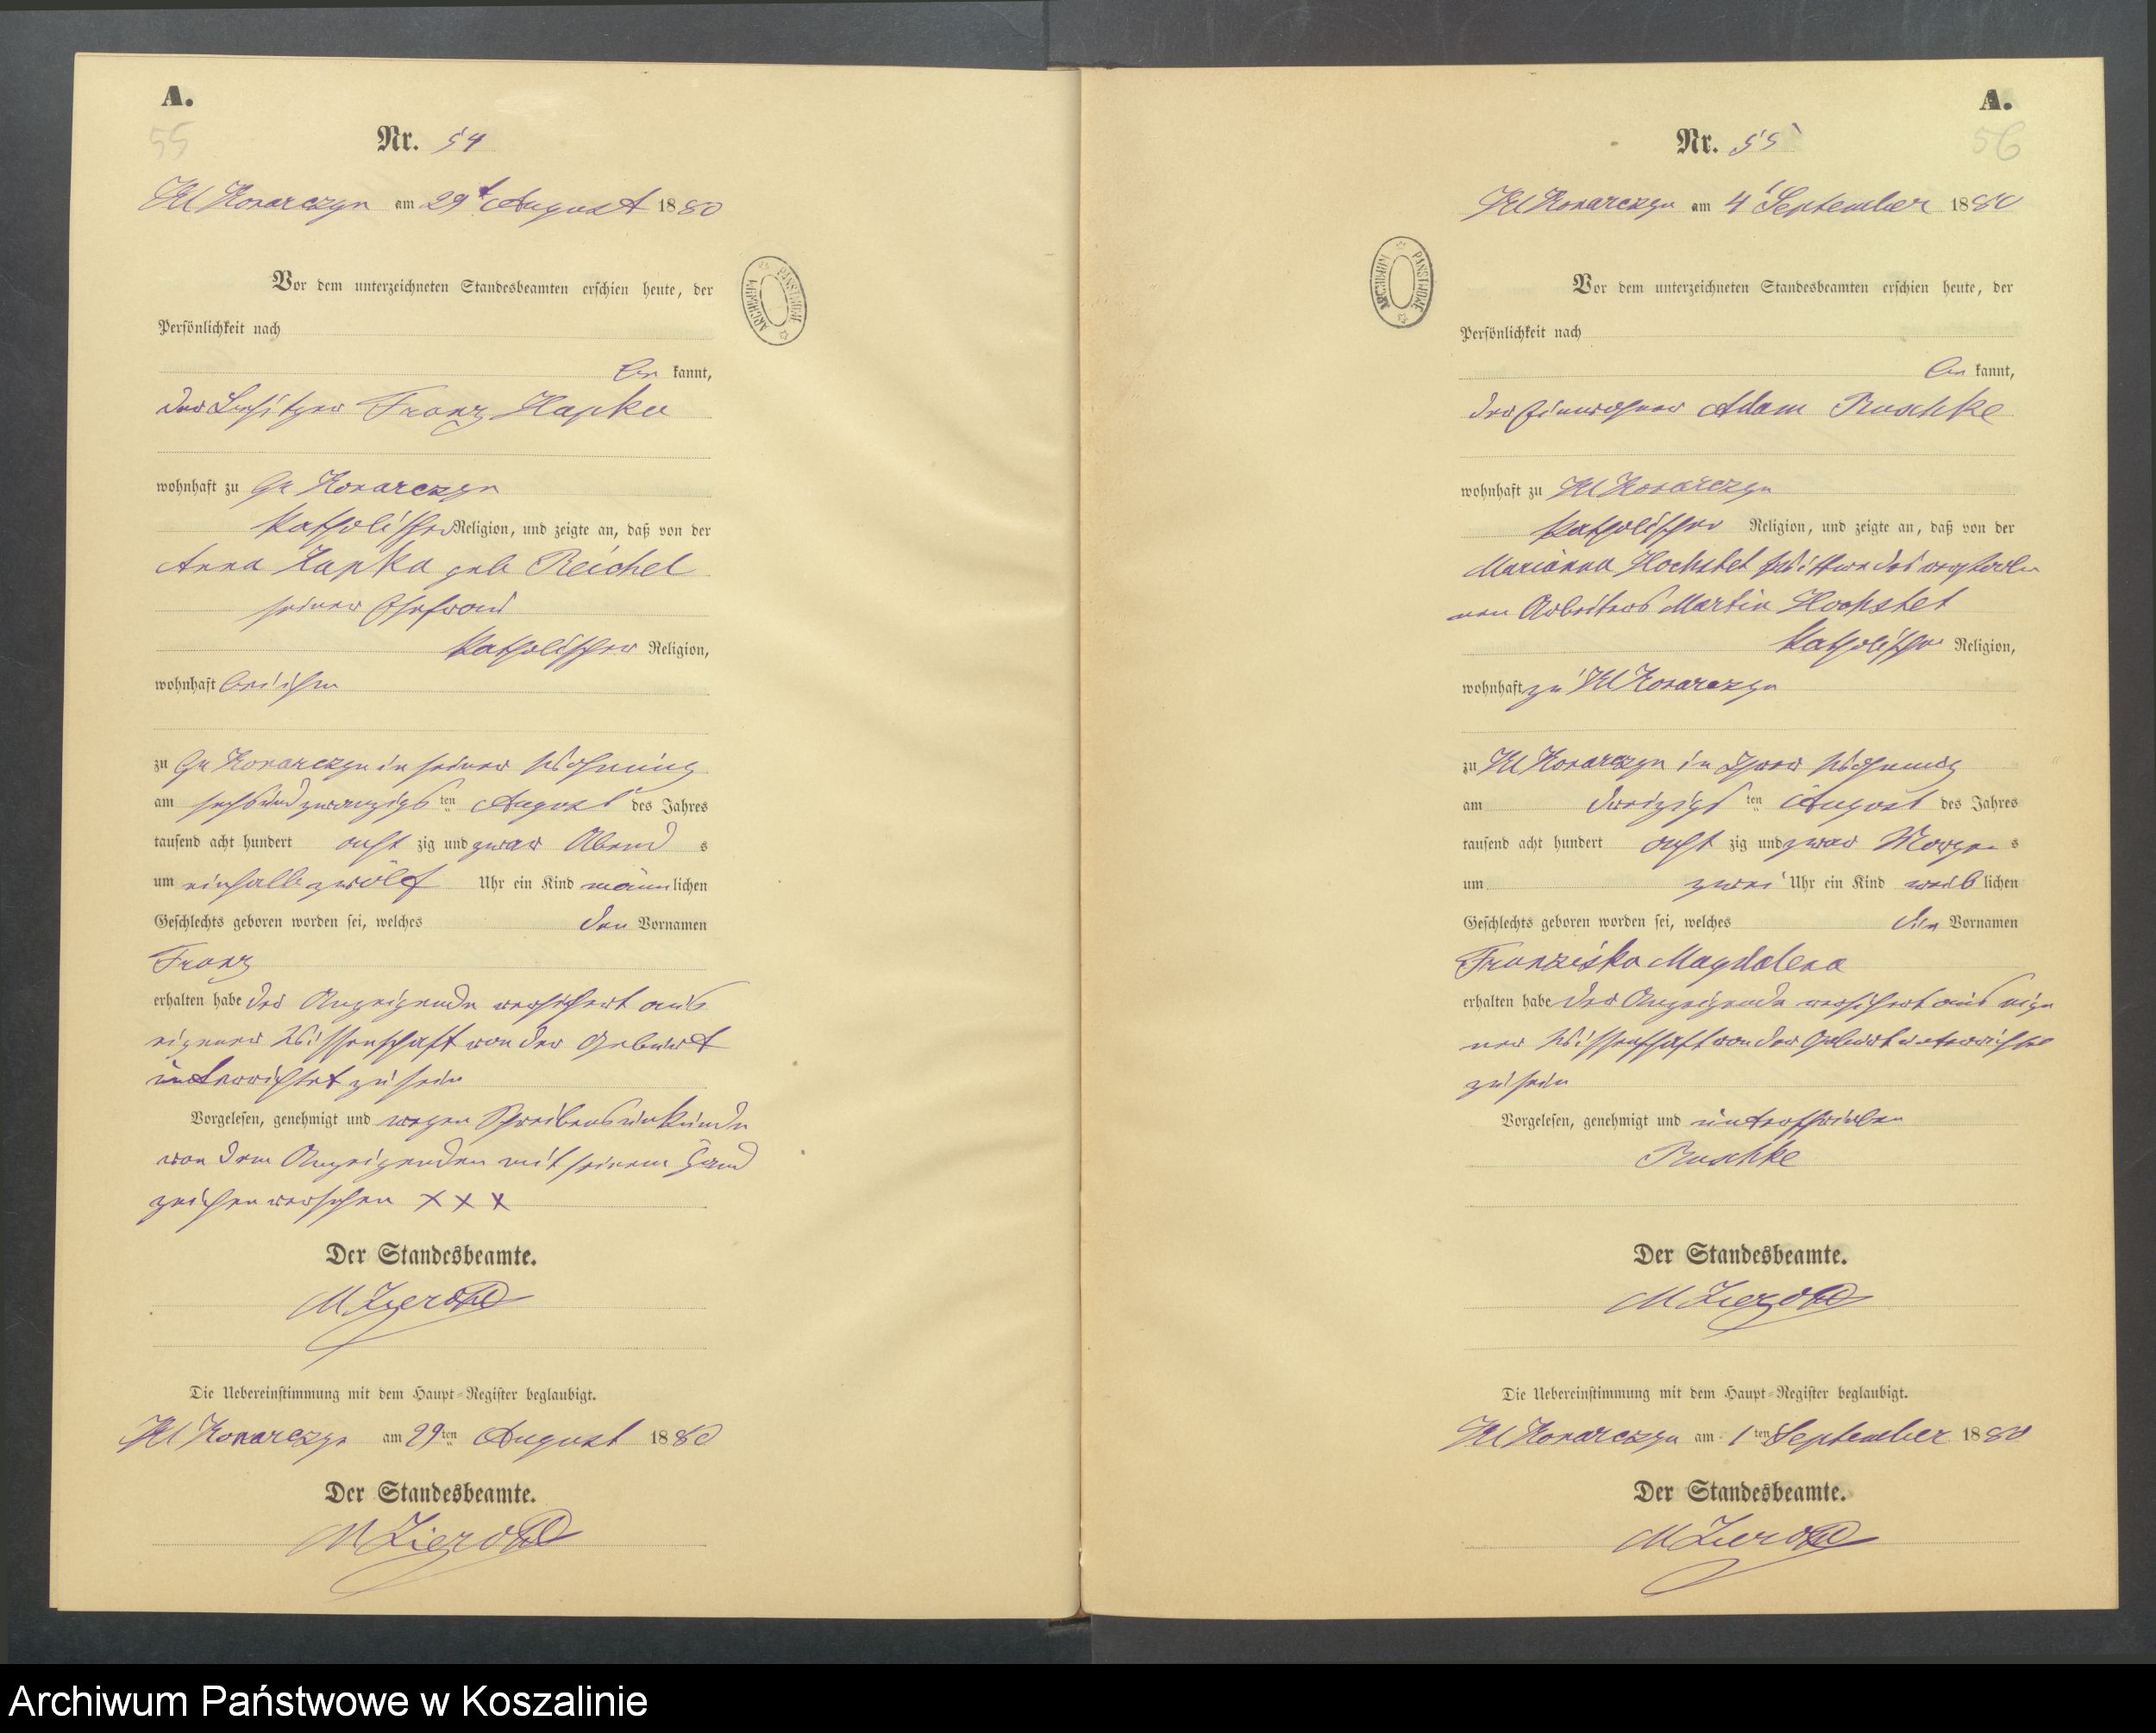 A.
55
Nr. 54
Kl Konarczyn am 29t August 1880
Vor dem unterzeichneten Standesbeamten erschien heute, der
Persönlichkeit nach
be kannt,
der Besitzer Franz Hapka
wohnhaft zu Gr Konarczyn
katholischer Religion, und zeigte an, daß von der
Anna Hapka geb Reichel
seiner Ehefrau
katholischer Religion,
wohnhaft bei ihm
zu Gr Konarczyn in seiner Wohnung
am sechsundzwanzigsten August des Jahres
tausend acht hundert acht zig und zwar Abend s
um einhalb zwölf Uhr ein Kind männlichen
Geschlechts geboren worden sei, welches den Vornamen
Franz
erhalten habe der Anzeigende versichert aus
eigener Wissenschaft von der Geburt
unterrichtet zu sein
Vorgelesen, genehmigt und wegen Schreibensunkunde
von dem Anzeigenden mit seinem Hand
zeichen versehen XXX
Der Standesbeamte.
Die Uebereinstimmung mit dem Haupt-Register beglaubigt.
Kl Konarczyn am 29ten August 1880
Der Standesbeamte.
ARCHIWUM PAŃSTWOWE
A.
56
Nr. 55
Kl Konarczyn am 4t September 1880
Vor dem unterzeichneten Standesbeamten erschien heute, der
Persönlichkeit nach
be kannt,
der Einwohner Adam Ruschke
wohnhaft zu Kl Konarczyn
katholischer Religion, und zeigte an, daß von der
Marianna Hochstet Wittwe des verstorbe
nen Arbeiters Martin Hochstet
katholischer Religion,
wohnhaft zu Kl Konarczyn
zu Kl Konarczyn in Ihrer Wohnung
am dreizigsten August des Jahres
tausend acht hundert acht zig und zwar Morgen s
um zwei Uhr ein Kind weiblichen
Geschlechts geboren worden sei, welches den Vornamen
Franziska Magdalena
erhalten habe der Anzeigende versichert aus eige
ner Wissenschaft von der Geburt unterrichtet
zu sein
Vorgelesen, genehmigt und unterschrieben
Ruschke
Der Standesbeamte.
Die Uebereinstimmung mit dem Haupt-Register beglaubigt.
Kl Konarczyn am 1ten September 1880
Der Standesbeamte.
ARCHIWUM PAŃSTWOWE
Archiwum Państwowe w Koszalinie